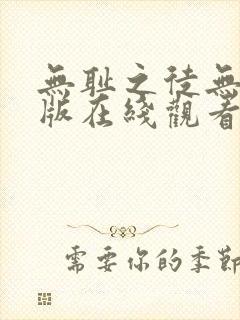 無耻之徒無
版在綫觀看
需要你的季節